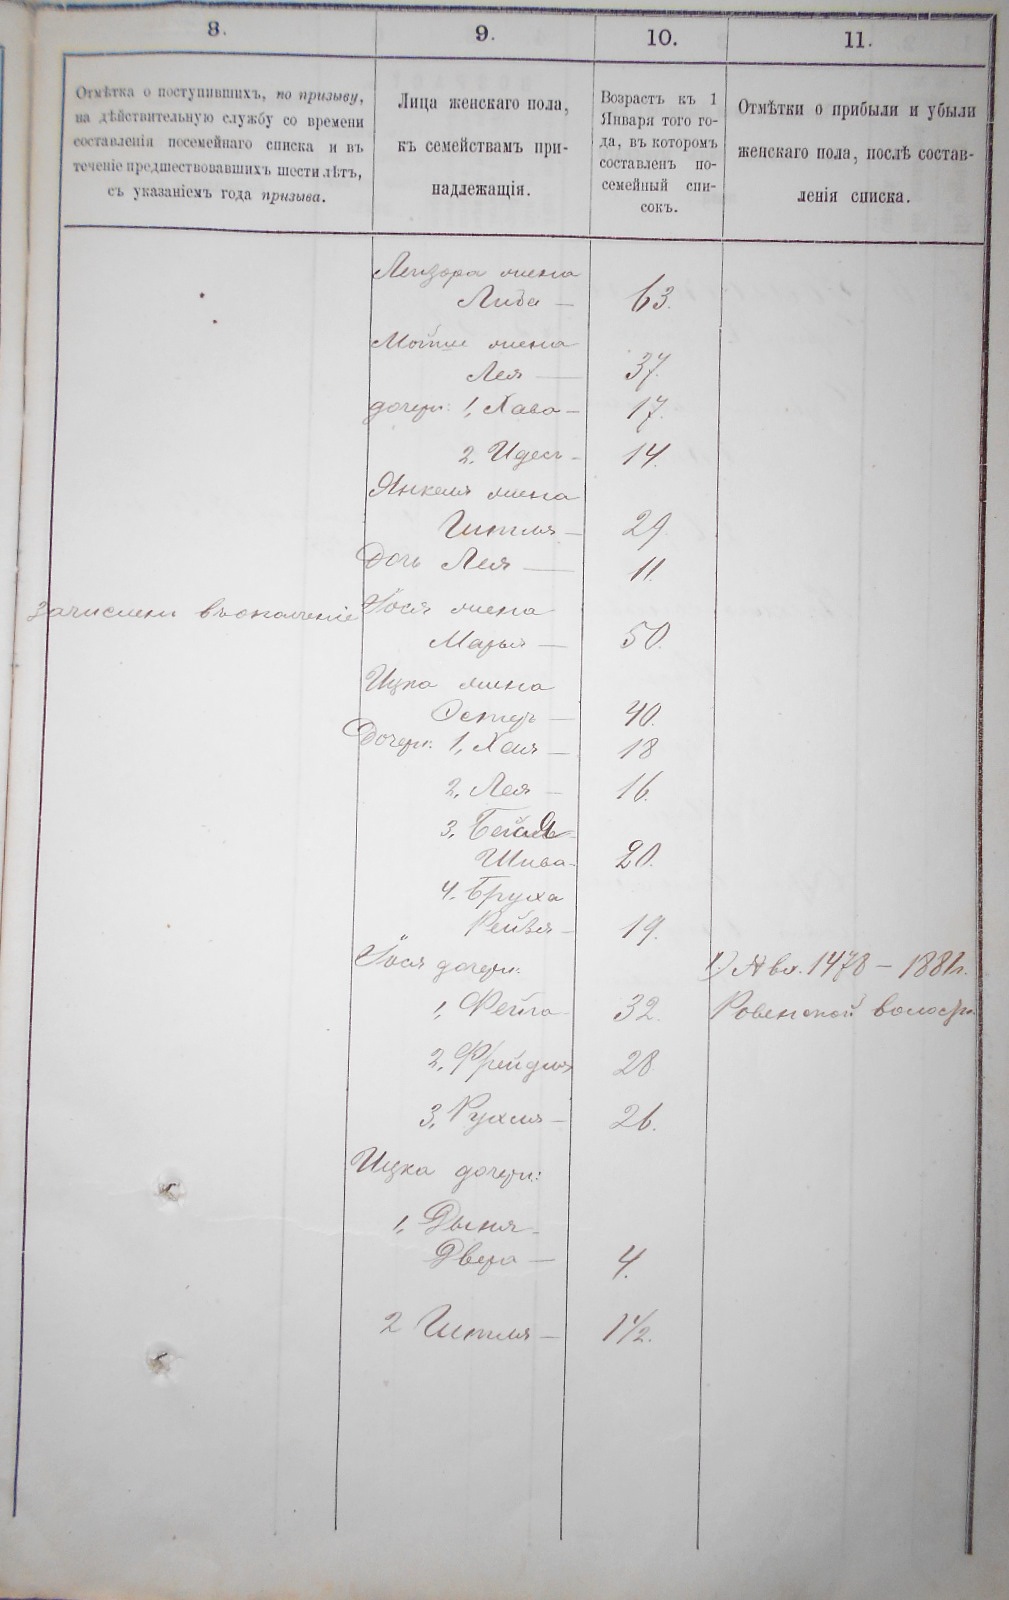 8.
9.
10.
11.
Отмѣтка о поступившихъ, по призыву,
на дѣйствительную службу со времени
составленія посемейнаго списка и въ
теченіе предшествовавшихъ шести лѣтъ,
съ указаніемъ года призыва.
Лица женскаго пола,
къ семействамъ при-
надлежащія.
Возрастъ къ 1
Января того го-
да, въ которомъ
составленъ по-
семейный спи-
сокъ.
Отмѣтки о прибыли и убыли
женскаго пола, послѣ состав-
ленія списка.
Лейзора жена
Либа — 63.
жена
Лея — 37.
дочери: 1, Хава — 17.
2. Идесъ — 14.
Янкеля жена
Гитля — 29.
Дочь Лея — 11.
Зачислены въ ополченіе Іося жена
Марья — 50.
Ицка жена
Эстеръ — 40.
Дочери: 1, Хая — 18
2, Лея — 16.
3, Бейля
Шива 20.
4. Бруха
Рейзя — 19.
Іося дочери: 1) № вх. 1478 — 1881г.
1, Фейга 32. Ровенской волости
2, Фрейдля 28
3, Рухля — 26.
Ицка дочери:
1, Дыня
Двера — 4.
2 Гитля — 1 1/2.